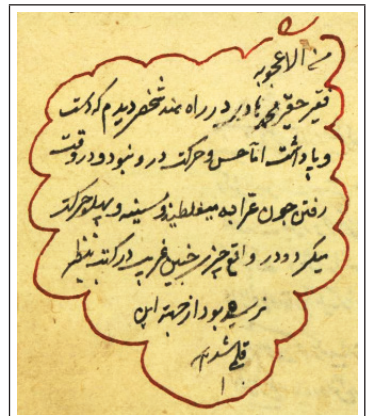 من الاعجوبه
فقیر حقیر محمد نادر در راه هند شخصی دیدم که دست
و پا داشت اما حس و حرکت در او نبود و در وقت
رفتن چون عرابه میغلطید و سینه و پهلو حرکت
میکرد و در واقع چیزی چنین غریب در کتب بنظر
نرسیده بود از جهة این
قلمی شد